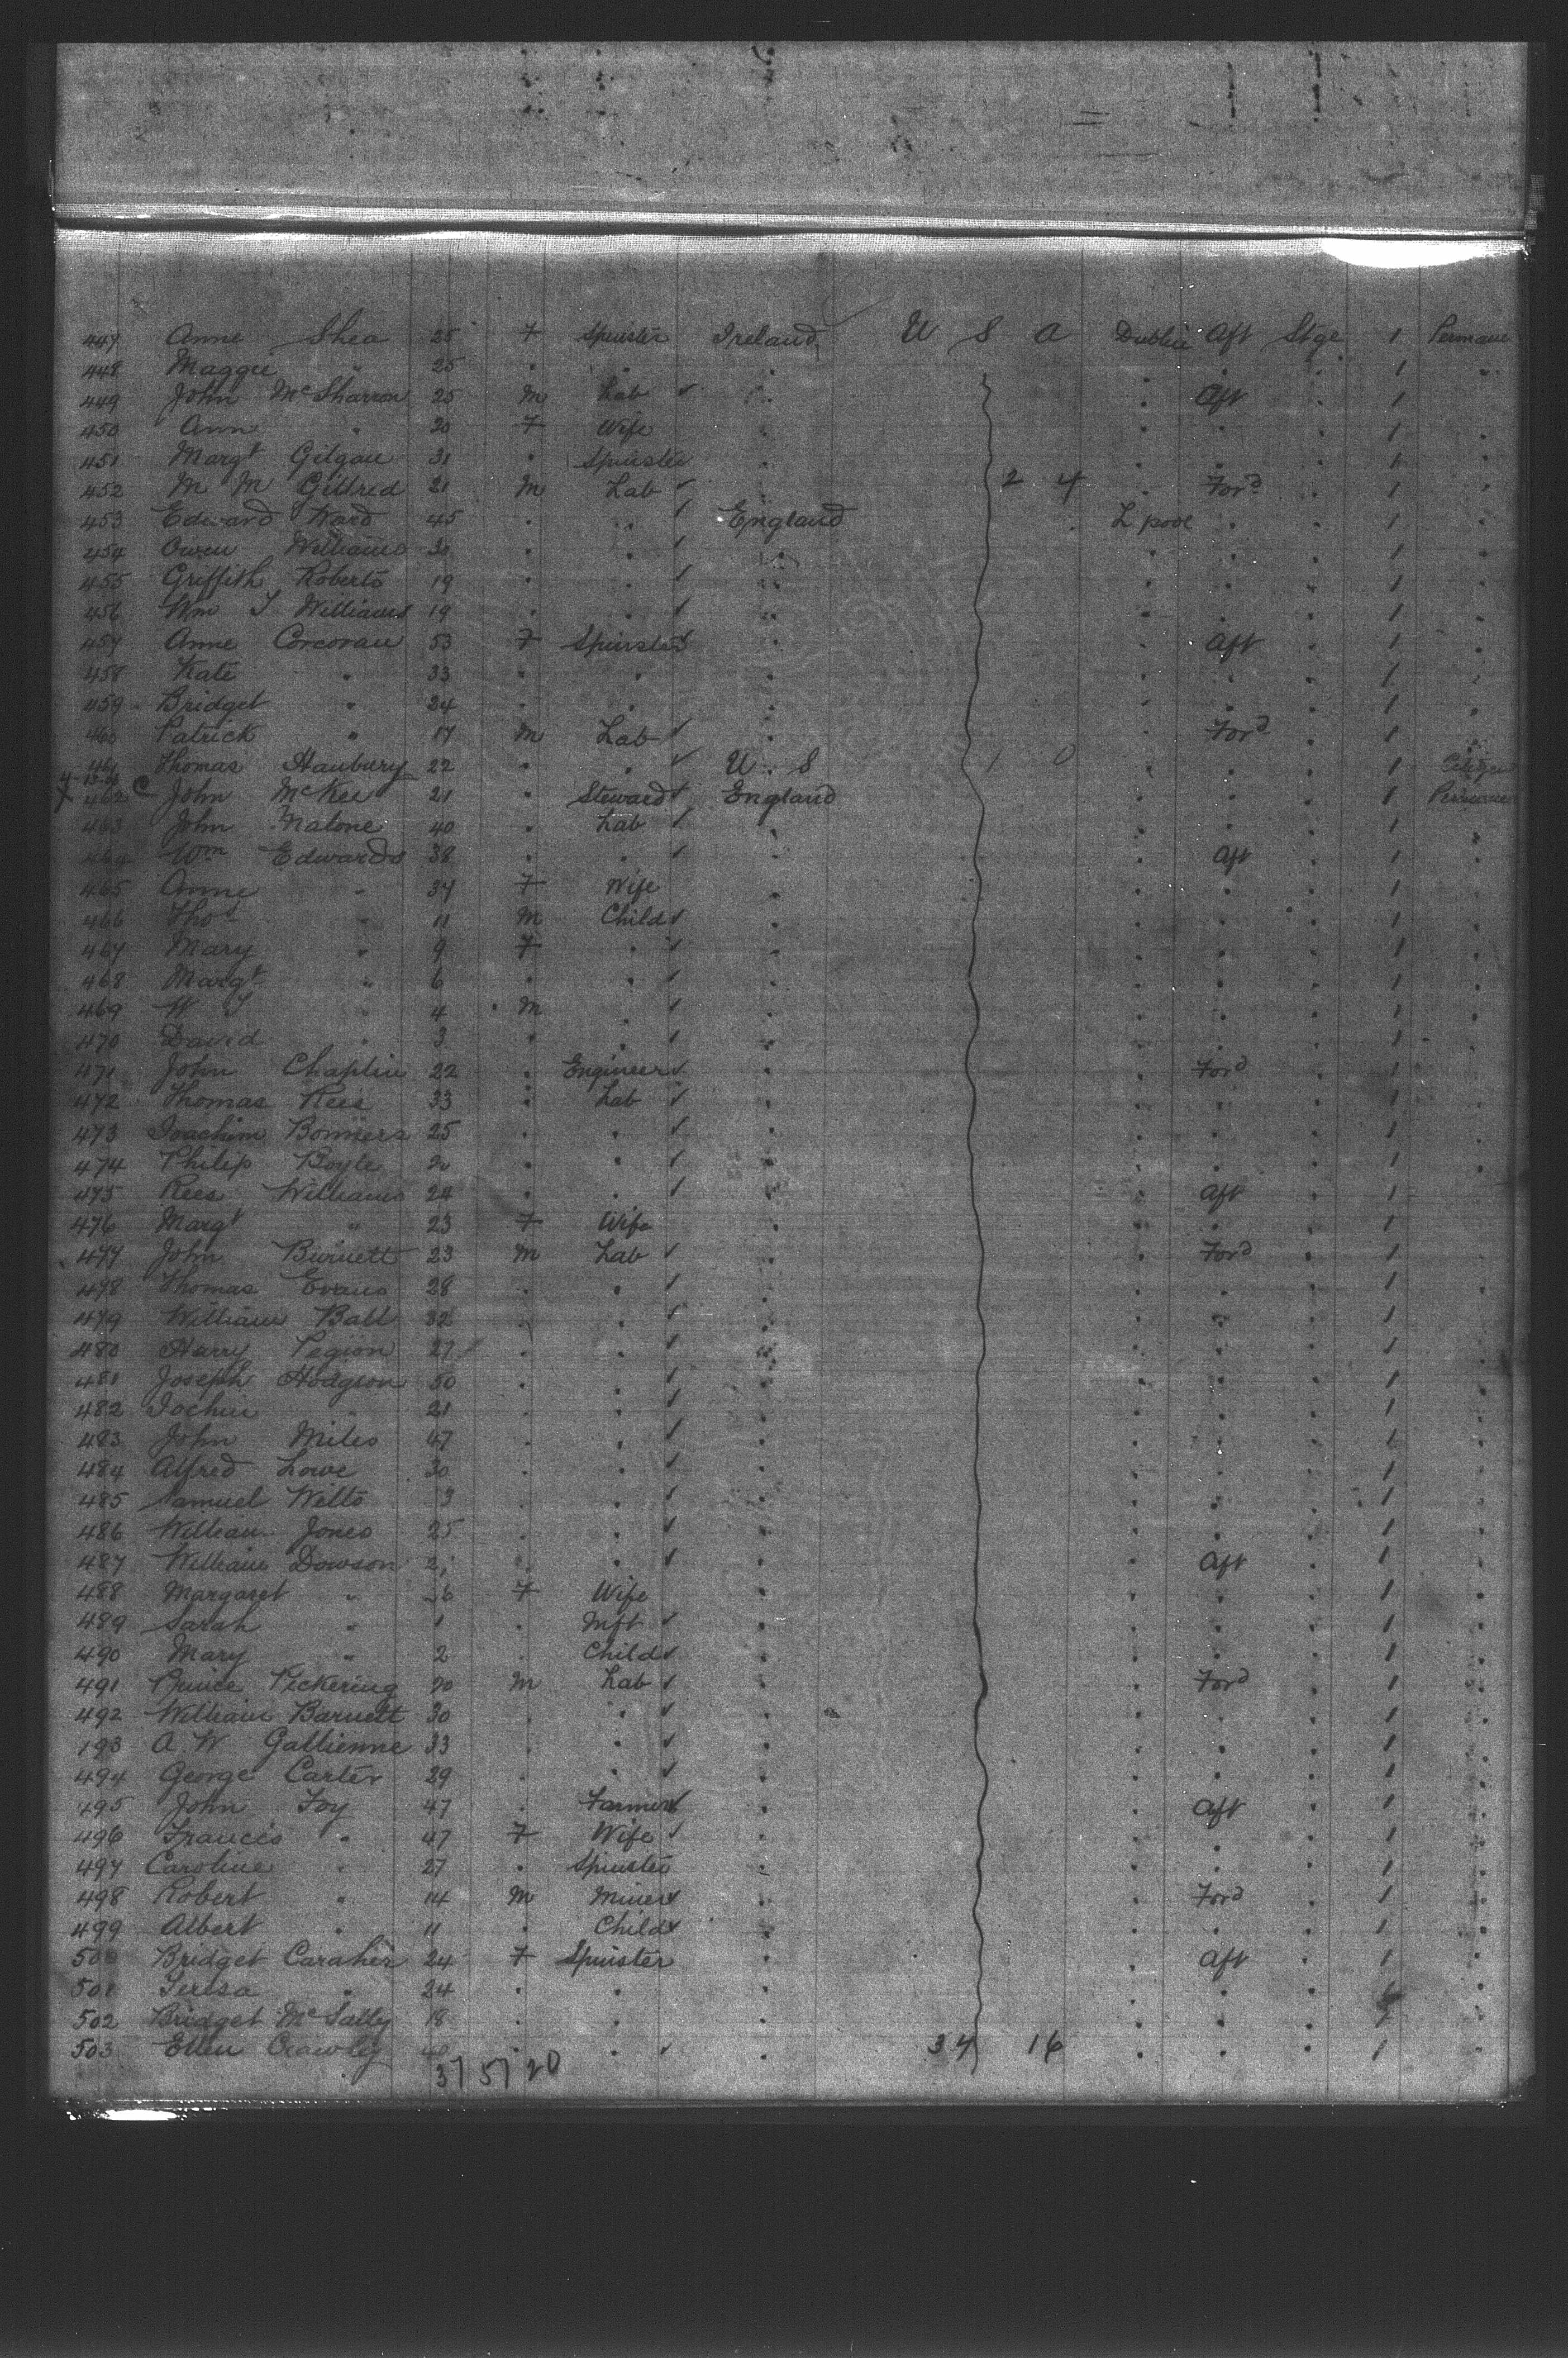 447 Anne Shea 25 F Spinster Ireland U S A Dublin Aft Stge 1
448 Maggie " 25 . . . . . . 1 .
449 John McSharron 25 M Lab ✓ . . Aft . 1 .
450 Ann " 20 F Wife . . . . 1 .
451 Margt Gilgan 31 . Spinster . . . . 1 .
452 M M Gillred 21 M Lab ✓ . 2 4 . Ford . 1 .
453 Edward Ward 45 . . ✓ England L pool . . 1 .
454 Owen Williams 30 . . ✓ . . . . 1 .
455 Griffith Roberts 19 . . ✓ . . . . 1 .
456 Wm J Williams 19 . . ✓ . . . . 1 .
457 Anne Corcoran 53 F Spinster . . Aft . 1 .
458 Kate " 33 . . . . . . 1 .
459 Bridget " 24 . . . . . . 1 .
460 Patrick " 17 M Lab ✓ . . Ford . 1 .
461 Thomas Hanbury 22 . . ✓ U . S 1 0 . . . 1
462 C John McKee 21 . Steward ✓ England . . . 1
463 John Malone 40 . Lab ✓ . . . . 1 .
464 Wm Edwards 38 . . ✓ . . Aft . 1 .
465 Anne " 34 F Wife . . . . 1 .
466 Thos " 11 M Child ✓ . . . . 1 .
467 Mary " 9 F . ✓ . . . . 1 .
468 Margt " 6 . . ✓ . . . . 1 .
469 W J " 4 M . ✓ . . . . 1 .
470 David " 3 . . ✓ . . . . 1 .
471 John Chaplin 22 . Engineer ✓ . . Ford . 1 .
472 Thomas Rees 33 . Lab ✓ . . . . 1 .
473 Joachim 25 . . ✓ . . . . 1 .
474 Philip Boyle . . ✓ . . . . 1 .
475 Rees Williams 24 . . ✓ . . Aft . 1 .
476 Margt " 23 F Wife . . . . 1 .
477 John Burnett 23 M Lab ✓ . . Ford . 1 .
478 Thomas Evans 28 . . ✓ . . . . 1 .
479 William Ball 32 . . ✓ . . . . 1 .
480 Harry Pegion 27 . . ✓ . . . . 1 .
481 Joseph Hodgson 50 . . ✓ . . . . 1 .
482 21 . . ✓ . . . . 1 .
483 John Miles 47 . . ✓ . . . . 1 .
484 Alfred Lowe 30 . . ✓ . . . . 1 .
485 Samuel Wilts . . ✓ . . . . 1 .
486 William Jones 25 . . ✓ . . . . 1 .
487 William Dowson . . ✓ . . Aft . 1 .
488 Margaret " F Wife . . . . 1 .
489 Sarah " 1 . Inft ✓ . . . . 1 .
490 Mary " 2 . Child ✓ . . . . 1 .
491 Prince Pickering 20 M Lab ✓ . . Ford . 1 .
492 William Barnett 30 . . ✓ . . . . 1 .
193 A. W Gallienne 33 . . ✓ . . . . 1 .
494 George Carter 29 . . ✓ . . . . 1 .
495 John Foy 47 . Farmer ✓ . . Aft . 1 .
496 Francis " 47 F Wife ✓ . . . . 1 .
497 Caroline " 27 . Spinster . . . . 1 .
498 Robert " 14 M Miner ✓ . . Ford . 1 .
499 Albert " 11 . Child ✓ . . . . 1 .
500 Bridget Caraher 24 F Spinster . . Aft . 1 .
501 Teresa " 24 . . . . . . 1 .
502 Bridget McSally 18 . . . . . . 1 .
503 Ellen Crawley . . ✓ . 34 16 . . . 1
37 57 20